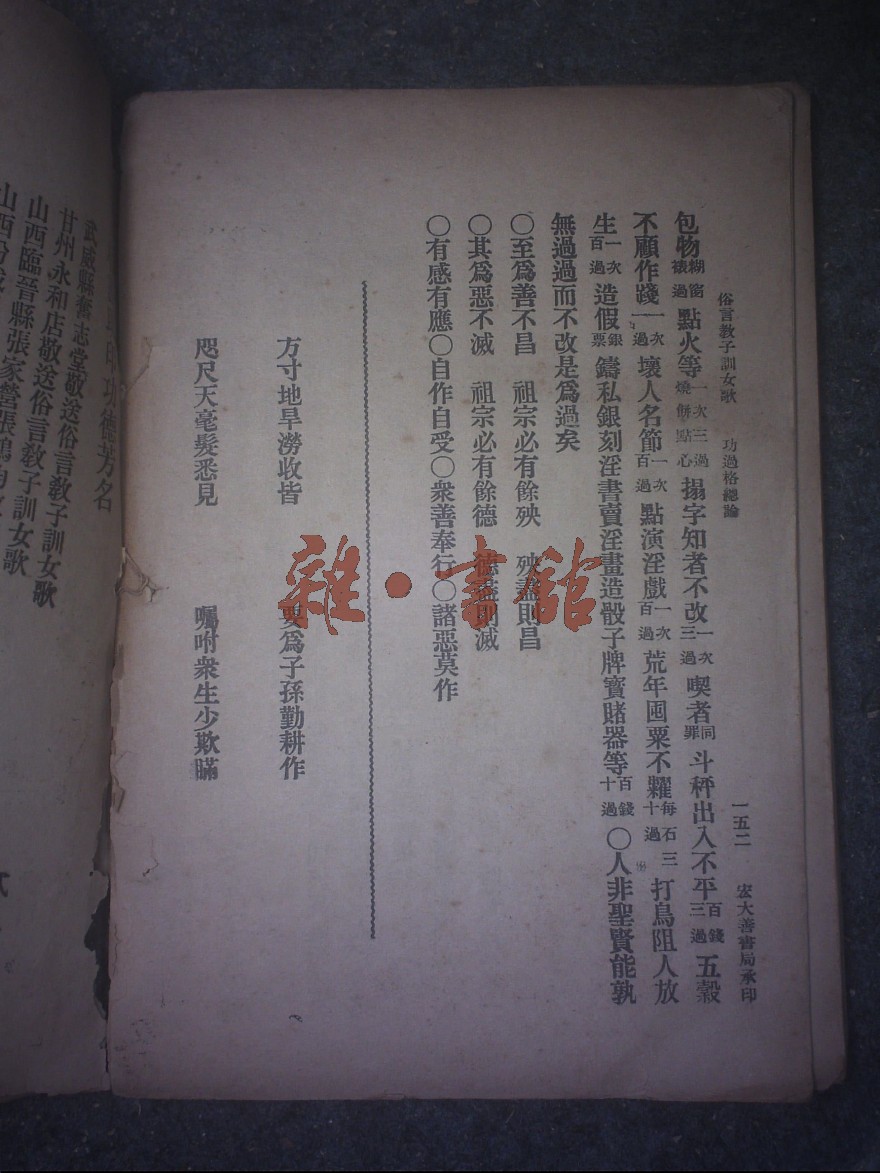 俗言教子訓女歌 功過格總論 一五二 宏大善書局承印
包物糊窗裱過點火等一次三過燒餅點心搨字知者不改一次三過喫者同罪斗秤出入不平百錢三過五穀
不顧作踐一次一過壞人名節一次百過點演淫戲一次百過荒年囤粟不糶每石十過三打鳥阻人放
生一次百過造假銀票鑄私銀刻淫書賣淫畫造骰子牌寶賭器等百錢十過〇人非聖賢能孰
無過過而不改是爲過矣
〇至爲善不昌 祖宗必有餘殃 殃盡則昌
〇其爲惡不滅 祖宗必有餘德 德盡則滅
〇有感有應〇自作自受〇衆善奉行〇諸惡莫作
方寸地旱澇收皆 要爲子孫勤耕作
咫尺天毫髮悉見 囑咐衆生少欺瞞
雜·書館
印功德芳名
武威縣奮志堂敬送俗言教子訓女歌
甘州永和店敬送俗言教子訓女歌
山西臨晉縣張家營張鶴
山西汾